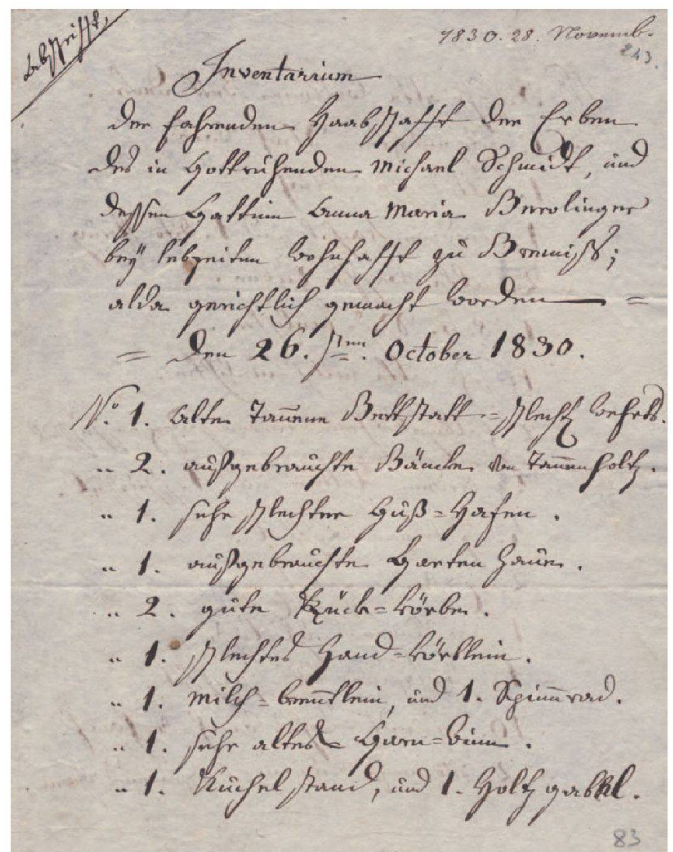 Abschrift,
1830. 28. Novemb.
243.
Inventarium
der fahrenden Haabschafft der Erben
des in Gottruhenden Michael Schmidt, und
dessen Gattin Anna Maria Bierolinger
bey lebzeiten wohnhafft zu
alda gerichtlich gemacht worden =
= den 26. sten. October 1830.
No. 1. alte Tannene Bettstatt = schlecht
" 2. außgebrauchte Bäncke von Tannenholtz.
" 1. sehr schlechter Guß = Hafen.
" 1. außgebrauchte Garten Hauen.
" 2. gute Rück = körbe.
" 1. schlechtes Hand = körblein.
" 1. Milch = und 1. Spinnrad.
" 1. sehr altes = Garn =
" 1. Küchel stand, und 1. Holtz gabbel.
83